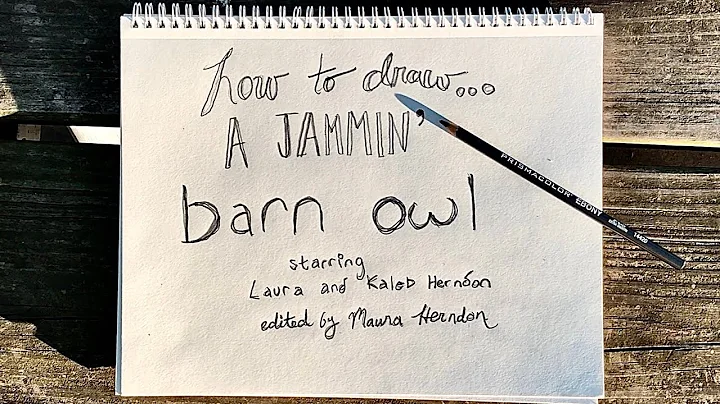 how to draw...
A JAMMIN'
barn owl
starring
Laura and Kaleb Herndon
edited by Maura Herndon
PRISMACOLOR EBONY